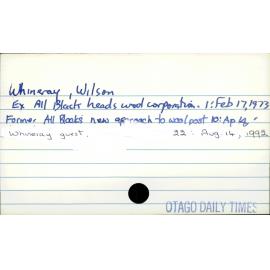 Whineray, Wilson
Ex All Blacks heads wool corporation. 1: Feb 17, 1973
Former All Blacks new approach to wool post 10: Ap 12, "
Whineray guest. 22: Aug. 14, 1992
OTAGO DAILY TIMES